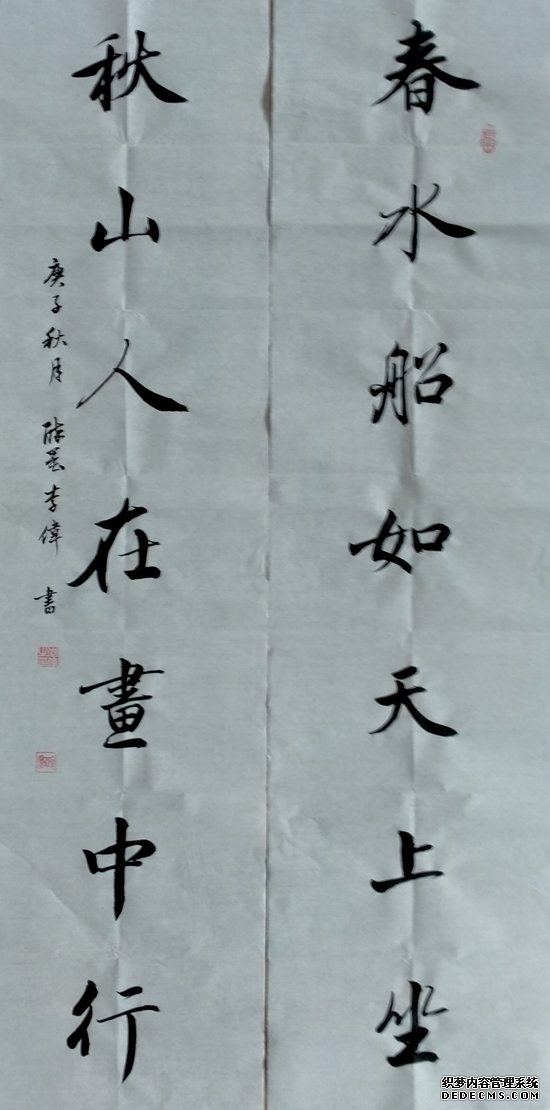 春水船如天上坐
秋山人在畫中行
庚子秋月 李偉 書
织梦内容管理系统
DEDECMS.COM